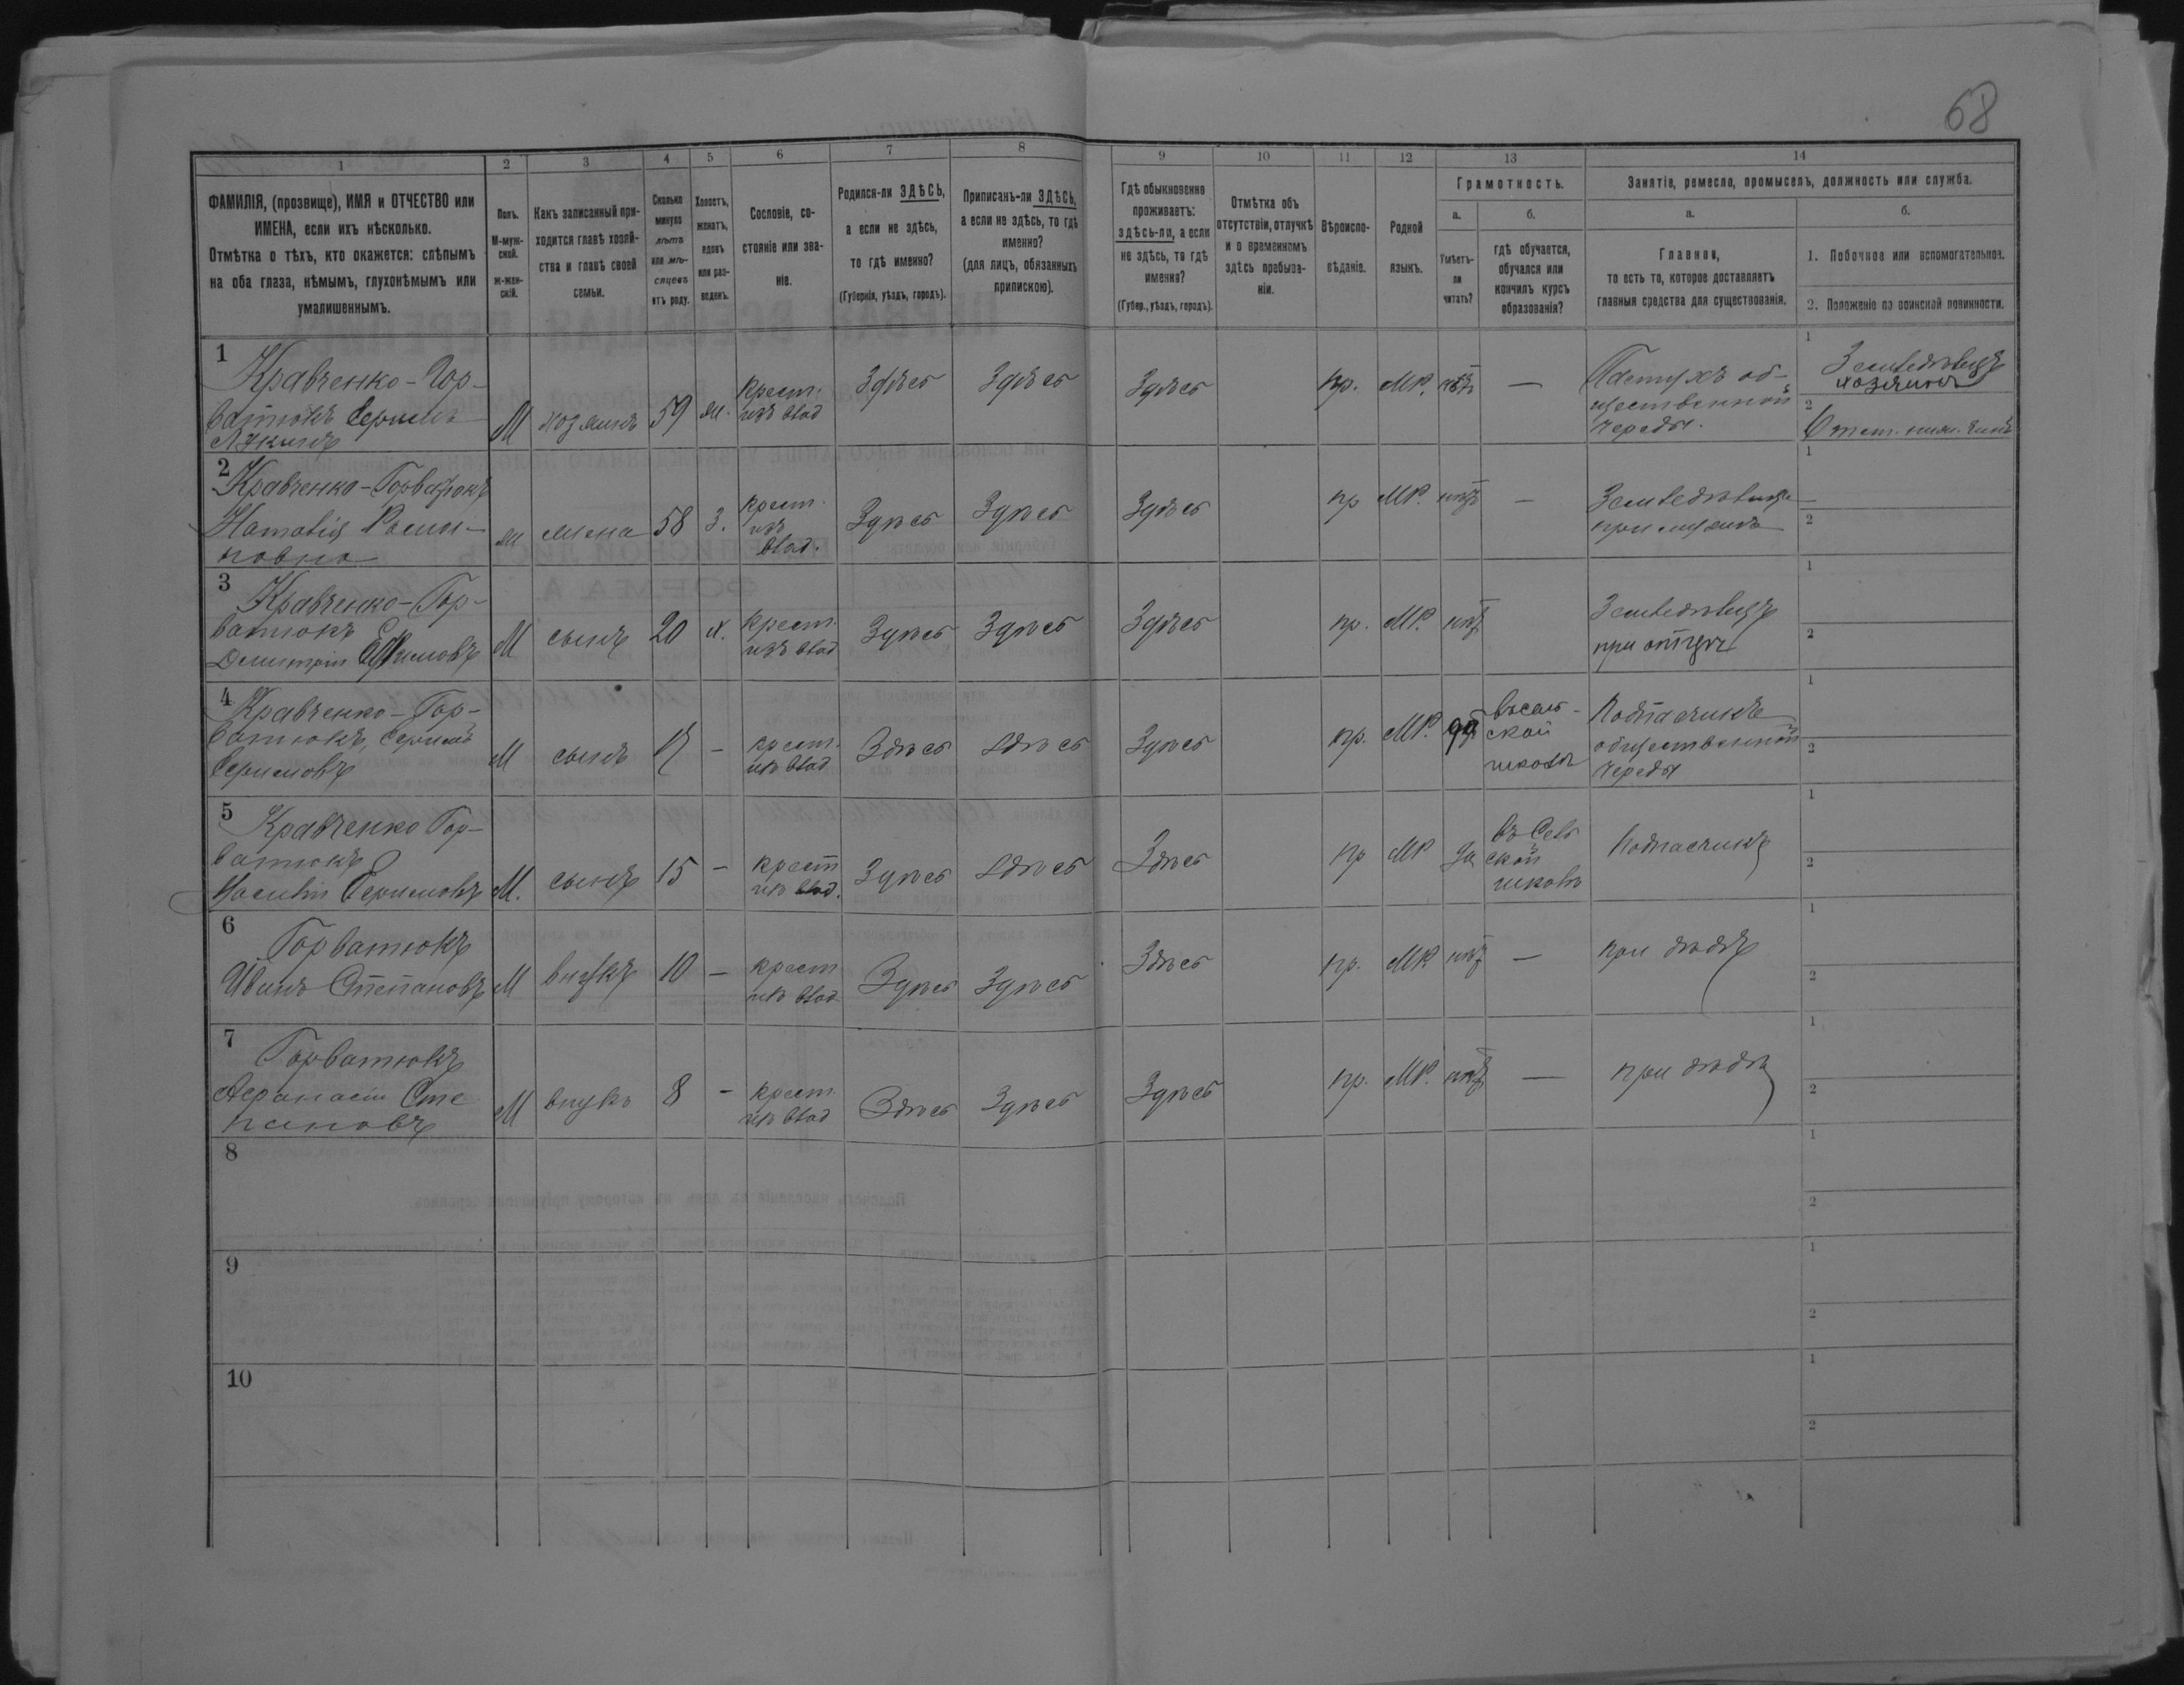 68
1 2 3 4 5 6 7 8 9 10 11 12 13 14
ФАМИЛІЯ, (прозвище), ИМЯ и ОТЧЕСТВО или
ИМЕНА, если ихъ нѣсколько.
Отмѣтка о тѣхъ, кто окажется: слѣпымъ
на оба глаза, нѣмымъ, глухонѣмымъ или
умалишеннымъ.
Полъ.
М-муж-
ской.
ж-жен-
скій.
Какъ записанный при-
ходится главѣ хозяй-
ства и главѣ своей
семьи.
Сколько
минуло
лѣтъ
или мѣ-
сяцевъ
отъ роду.
Холостъ,
женатъ,
вдовъ
или раз-
веденъ.
Сословіе, со-
стояніе или зва-
ніе.
Родился-ли ЗДѢСЬ,
а если не здѣсь,
то гдѣ именно?
(Губернія, уѣздъ, городъ).
Приписанъ-ли ЗДѢСЬ,
а если не здѣсь, то гдѣ
именно?
(для лицъ, обязанныхъ
припискою).
Гдѣ обыкновенно
проживаетъ:
здѣсь-ли, а если
не здѣсь, то гдѣ
именно?
(Губер., уѣздъ, городъ).
Отмѣтка объ
отсутствіи, отлучкѣ
и о временномъ
здѣсь пребыва-
ніи.
Вѣроиспо-
вѣданіе.
Родной
языкъ.
Грамотность.
а.
Умѣетъ-
ли
читать?
б.
гдѣ обучается,
обучался или
кончилъ курсъ
образованія?
Занятіе, ремесло, промыселъ, должность или служба.
а.
Главное,
то есть то, которое доставляетъ
главныя средства для существованія.
б.
1. Побочное или вспомогательное.
2. Положеніе по воинской повинности.
1
Кравченко-Гор-
батюкъ Ефимъ
М хозяинъ 59 ж. крест. изъ влад Здѣсь Здѣсь Здѣсь пр. МР. нѣтъ —
Пастухъ об-
щественной
череды.
1
Земледѣлецъ
хозяинъ
2
Отст. ниж. чинъ
2
Кравченко-Горбатюкъ
жена 58 З. крест. изъ влад. Здѣсь Здѣсь Здѣсь пр МР. нѣтъ —
при мужѣ
1
2
3
Кравченко-Гор-
батюкъ
Дмитрій Ефимовъ
М сынъ 20 х. крест. изъ влад Здѣсь Здѣсь Здѣсь пр. МР. нѣтъ
Земледѣлецъ
при отцѣ
1
2
4
Кравченко-Гор-
батюкъ, Ефимъ
Ефимовъ
М сынъ 17 — крест. изъ влад Здѣсь Здѣсь Здѣсь пр. МР. да
въ сель-
ской
школѣ
Подпасчикъ
общественной
череды
1
2
5
Кравченко Гор-
батюкъ
Ефимовъ
М. сынъ 15 — крест изъ влад. Здѣсь Здѣсь Здѣсь пр МР да
въ Сель
ской
школѣ
Подпасчикъ
1
2
6
Горбатюкъ
Иванъ Степановъ
М внукъ 10 — крест изъ влад Здѣсь Здѣсь Здѣсь пр. МР нѣтъ —
при дѣдѣ
1
2
7
Горбатюкъ
Афанасій Сте
пановъ
М внукъ 8 — крест изъ влад Здѣсь Здѣсь Здѣсь пр. МР. нѣтъ —
при дѣдѣ
1
2
8
1
2
9
1
2
10
1
2